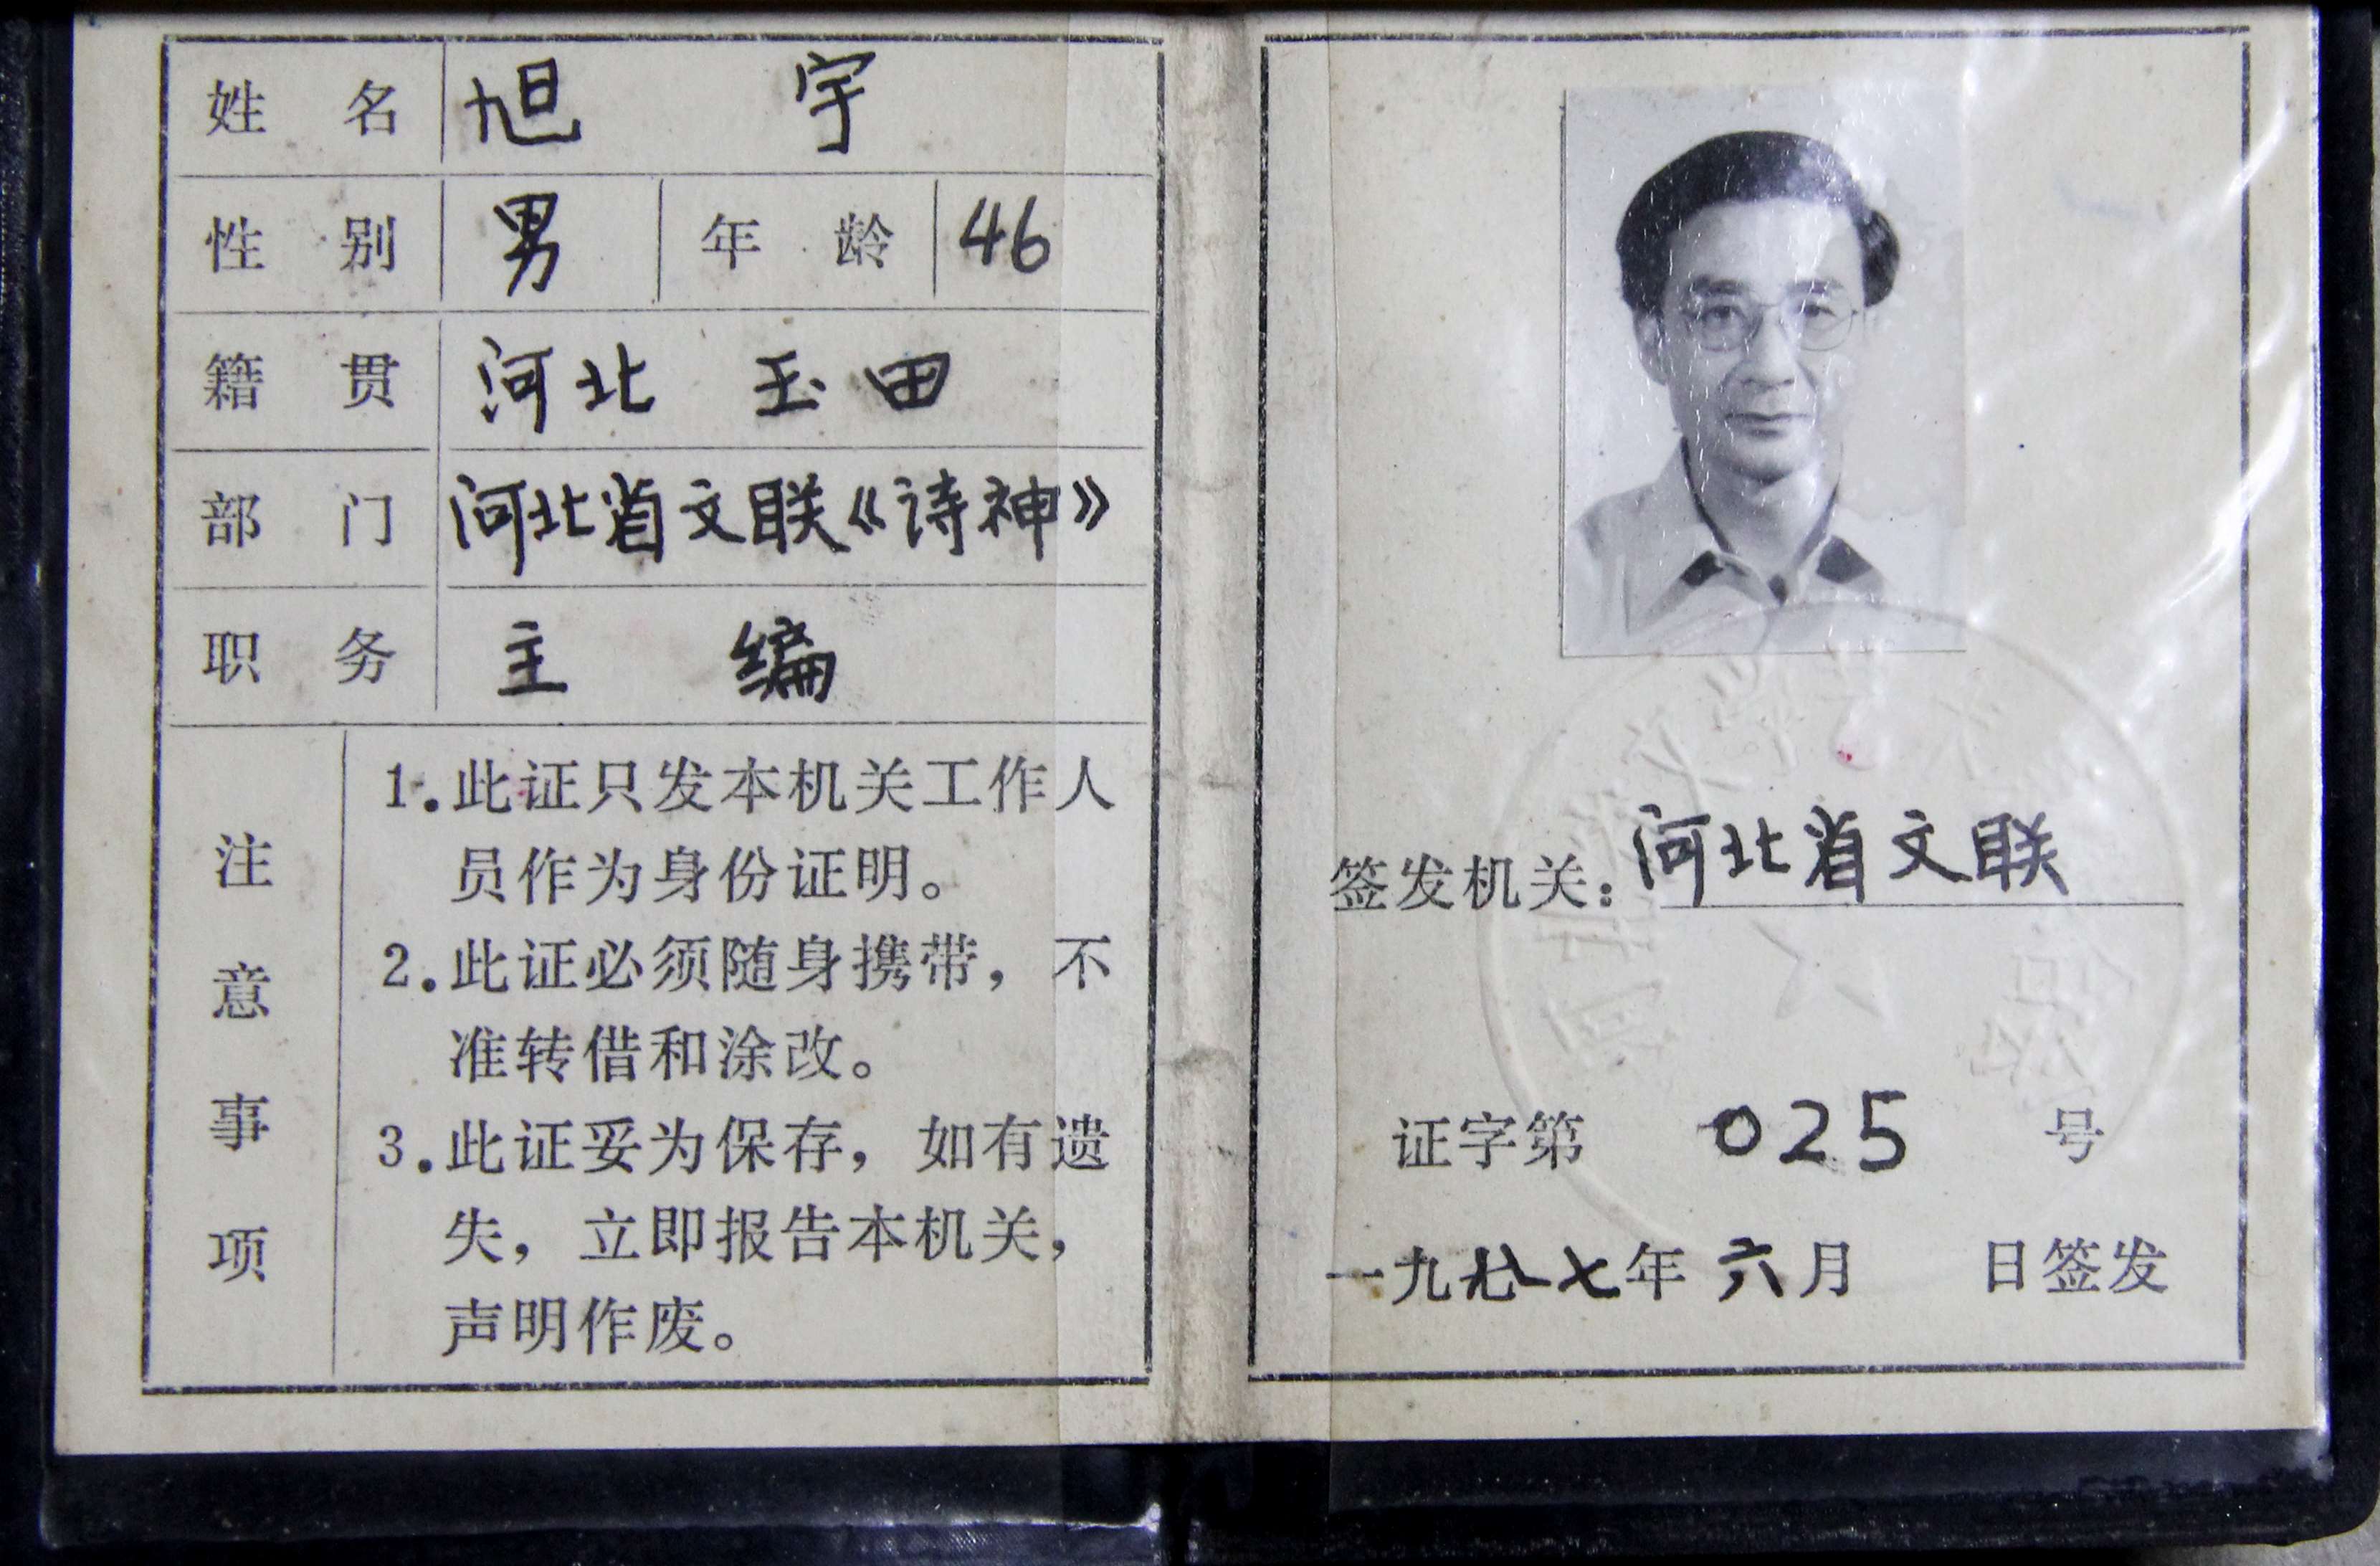 姓 名 旭 宇
性 别 男 年 龄 46
籍 贯 河北 玉田
部 门 河北省文联《诗神》
职 务 主 编
注意事项
1.此证只发本机关工作人
员作为身份证明。
2.此证必须随身携带，不
准转借和涂改。
3.此证妥为保存，如有遗
失，立即报告本机关，
声明作废。
签发机关：河北省文联
证字第 025 号
一九八七年六月 日签发